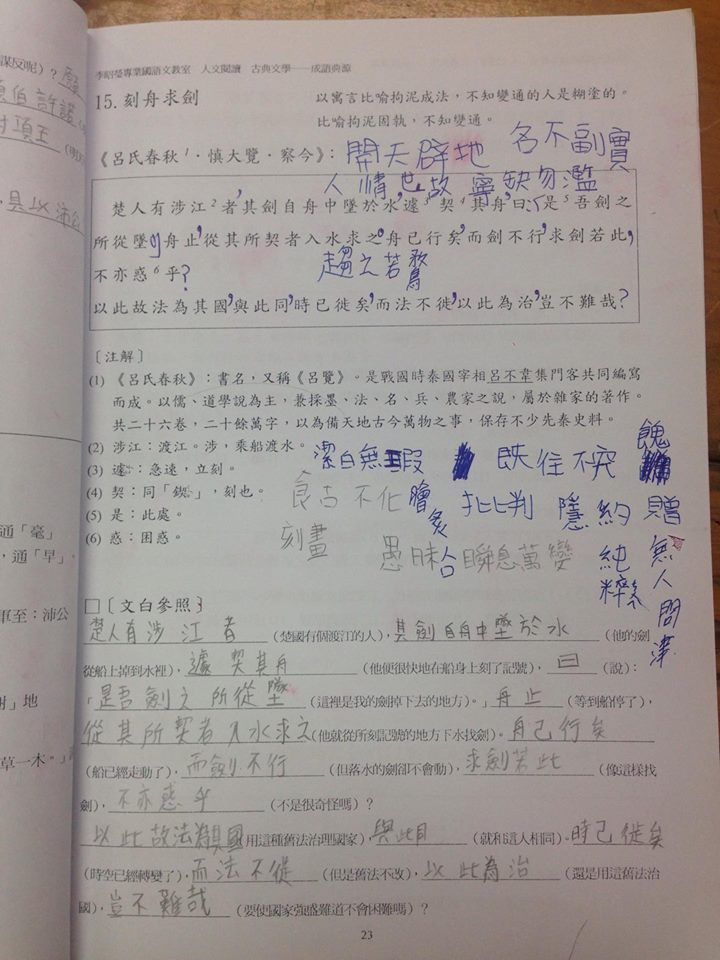 謀反呢）？
項伯許諾
項王
具以沛公
通「毫」
，通「早」。
軍至：沛公
」地
草一木」
李昭瑩專業國語文教室　人文閱讀　古典文學——成語典源
15. 刻舟求劍
以寓言比喻拘泥成法，不知變通的人是糊塗的。
比喻拘泥固執，不知變通。
《呂氏春秋1．慎大覽．察今》：
開天辟地　名不副實
人情世故　寧缺勿濫
楚人有涉江2者，其劍自舟中墜於水，遽3契4其舟，曰：「是5吾劍之
所從墜。」舟止，從其所契者入水求之。舟已行矣，而劍不行，求劍若此，
不亦惑6乎？
趨之若鶩
以此故法為其國，與此同，時已徙矣，而法不徙，以此為治，豈不難哉？
〔注解〕
(1) 《呂氏春秋》：書名，又稱《呂覽》。是戰國時秦國宰相呂不韋集門客共同編寫
而成。以儒、道學說為主，兼採墨、法、名、兵、農家之說，屬於雜家的著作。
共二十六卷，二十餘萬字，以為備天地古今萬物之事，保存不少先秦史料。
(2) 涉江：渡江。涉，乘船渡水。
(3) 遽：急速，立刻。
(4) 契：同「鍥」，刻也。
(5) 是：此處。
(6) 惑：困惑。
潔白無瑕　既往不究
食古不化　膾炙　批判　隱約　餽贈
刻畫　愚昧　合　瞬息萬變　純粹　無人問津
□〔文白參照〕
楚人有涉江者（楚國有個渡江的人），其劍自舟中墜於水（他的劍
從船上掉到水裡），遽契其舟（他便很快地在船身上刻了記號），曰（說）：
「是吾劍之所從墜（這裡是我的劍掉下去的地方）。」舟止（等到船停了），
從其所契者入水求之（他就從所刻記號的地方下水找劍）。舟已行矣
（船已經走動了），而劍不行（但落水的劍卻不會動），求劍若此（像這樣找
劍），不亦惑乎（不是很奇怪嗎）？
以此故法為其國（用這種舊法治理國家），與此同（就和這人相同）。時已徙矣
（時空已經轉變了），而法不徙（但是舊法不改），以此為治（還是用這舊法治
國），豈不難哉（要使國家強盛難道不會困難嗎）？
23